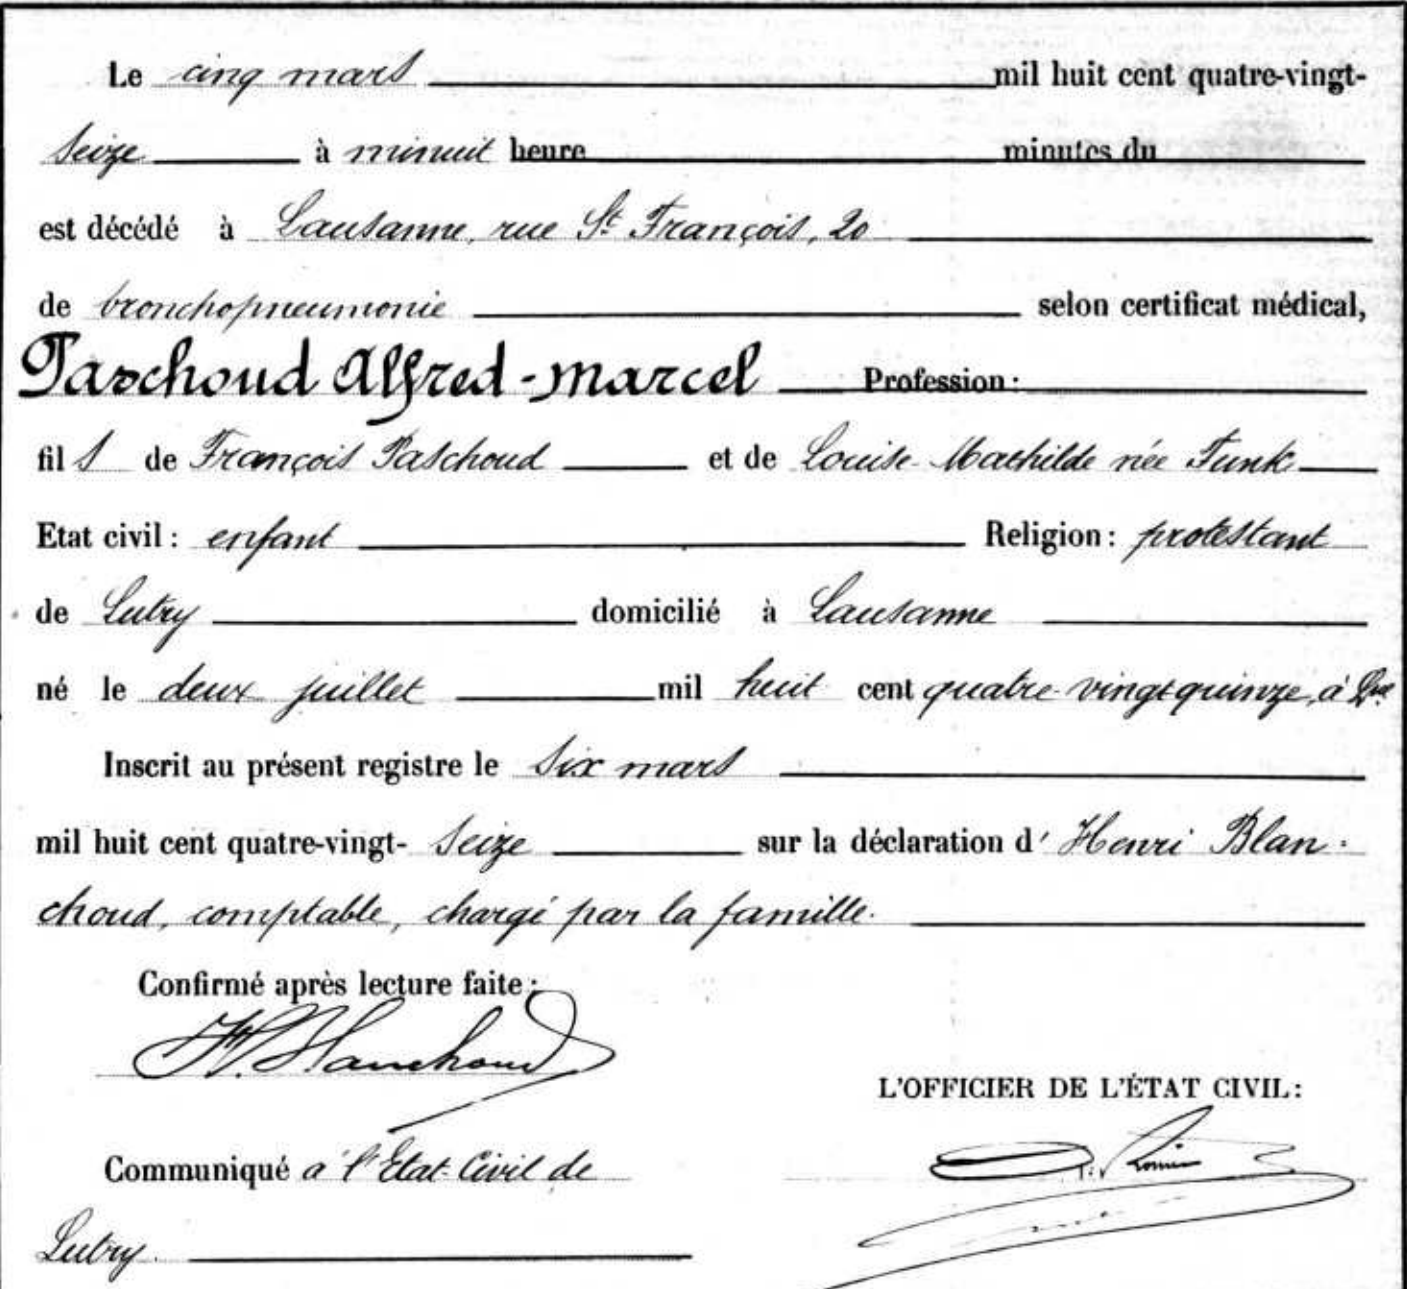 Le cinq mars mil huit cent quatre-vingt-
seize à minuit heure minutes du
est décédé à Lausanne, rue St François, 20
de bronchopneumonie selon certificat médical,
Paschoud Alfred-Marcel Profession:
fil s de François Paschoud et de Louise-Mathilde née Funk
Etat civil: enfant Religion: protestant
de Lutry domicilié à Lausanne
né le deux juillet mil huit cent quatre-vingt quinze, à
Inscrit au présent registre le six mars
mil huit cent quatre-vingt- seize sur la déclaration d' Henri Blan-
choud, comptable, chargé par la famille.
Confirmé après lecture faite:
H. Blanchoud
L'OFFICIER DE L'ÉTAT CIVIL:
Communiqué à l'Etat-Civil de
Lutry.